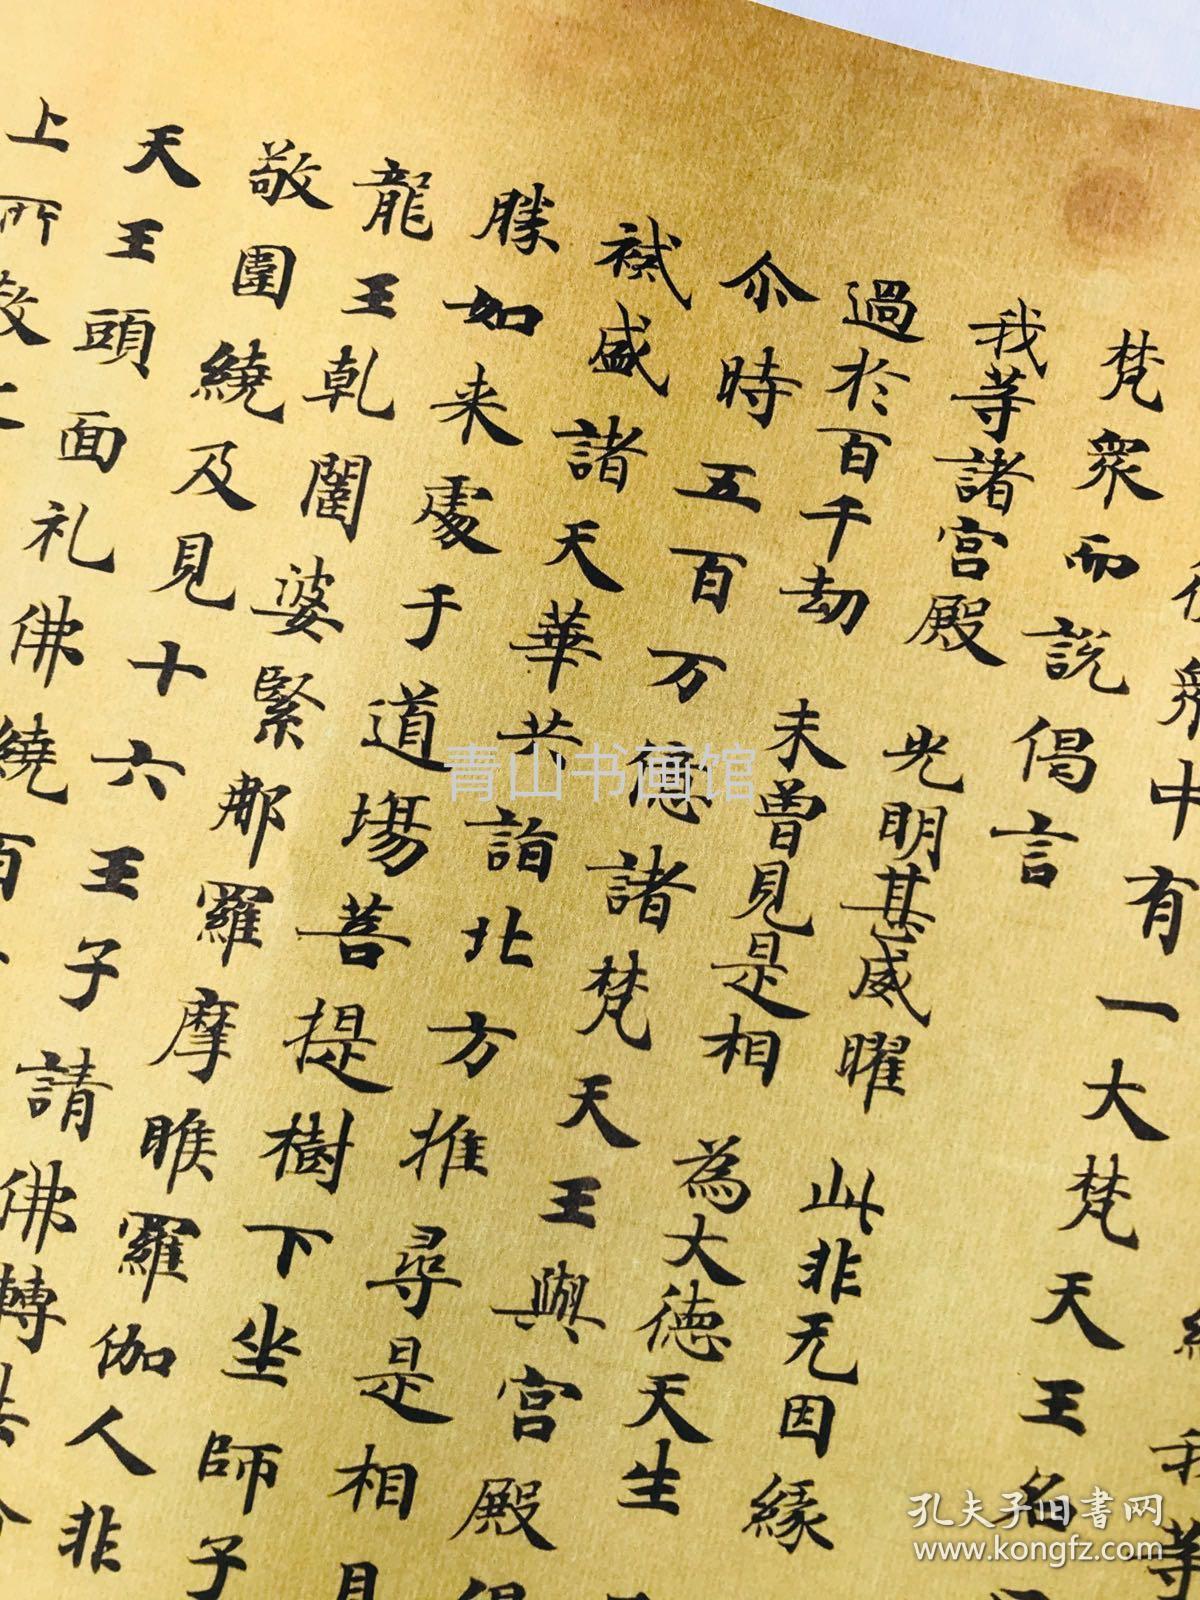 衆中有一大梵天王名
梵衆而說偈言
我等諸宮殿 光明甚威曜 此非无因緣
過於百千劫 未曾見是相 為大德天生
尒時五百万億諸梵天王與宮殿
裓盛諸天華共詣北方推尋是相見
勝如来處于道場菩提樹下坐師子
龍王乹闥婆緊那羅摩睺羅伽人非
敬圍繞及見十六王子請佛轉
天王頭面礼佛繞百
上所散
我等
青山书画馆
孔夫子旧书网
www.kongfz.com